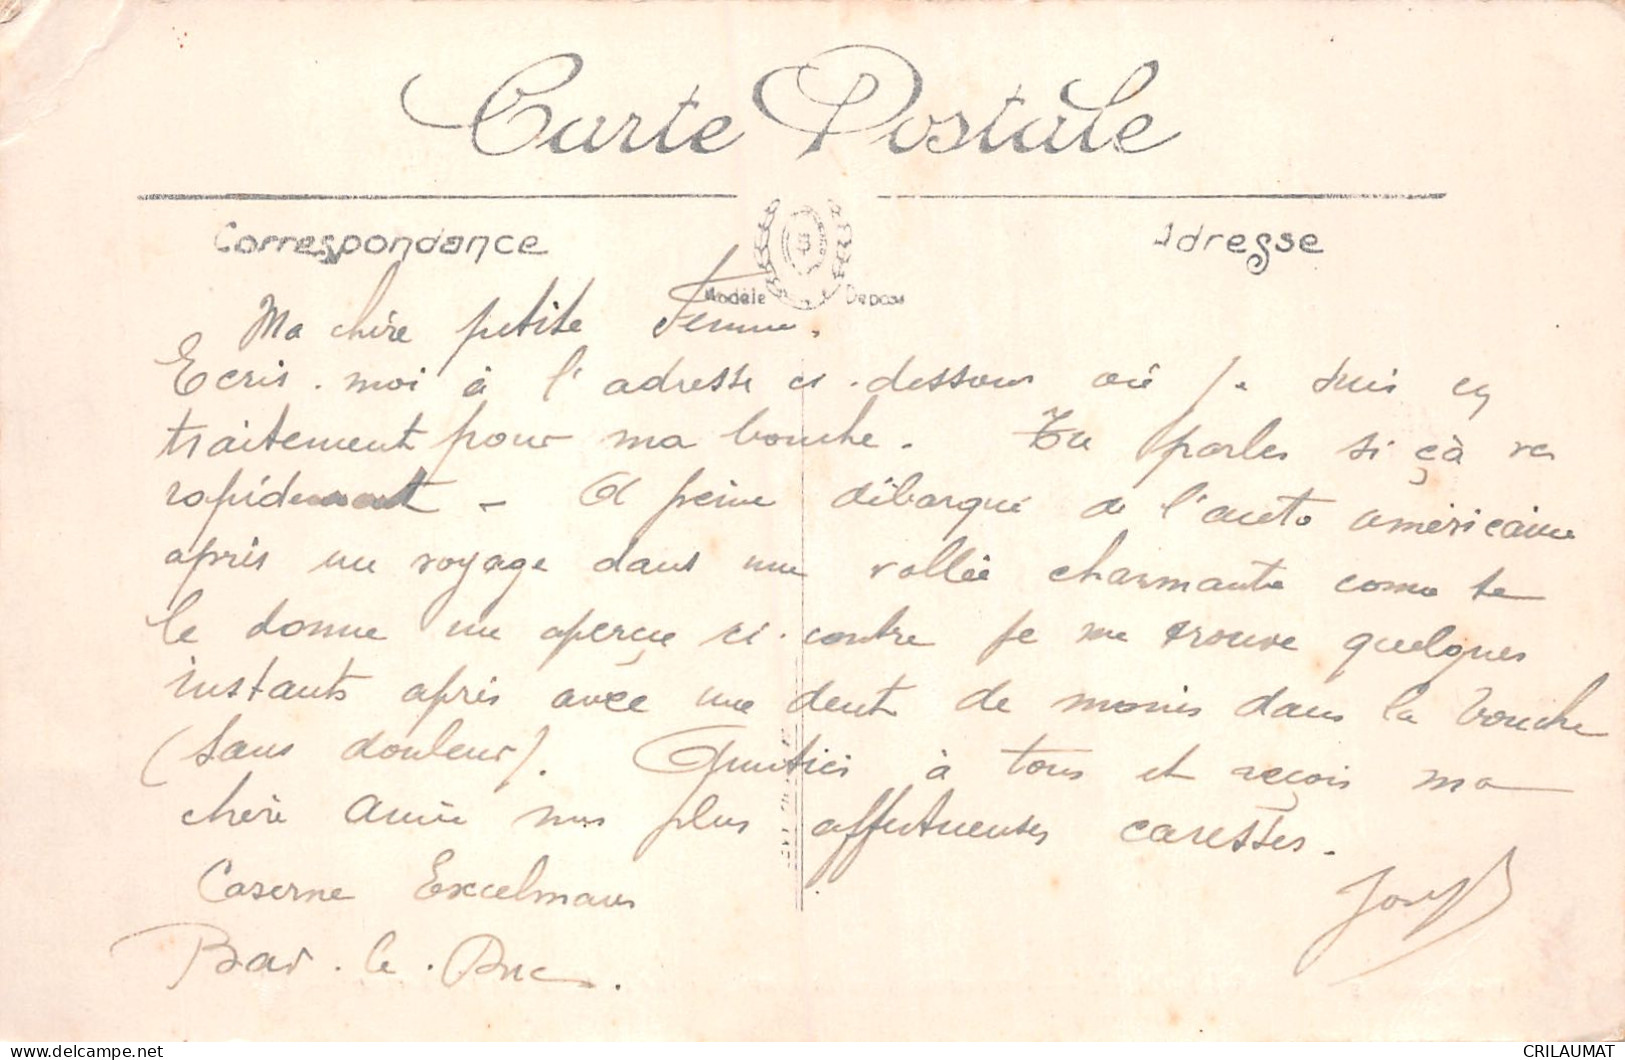 Carte Postale
Correspondance
Adresse
Modèle Déposé
Ma chère petite Femme.
Ecris-moi à l'adresse ci-dessous où je suis en
traitement pour ma bouche. Tu parles si çà va
rapidement - A peine débarqué de l'auto américaine
après un voyage dans une vallée charmante come te
le donne un aperçu ci-contre je me trouve quelques
instants après avec une dent de moins dans la bouche
(sans douleur). Amitiés à tous et reçois ma
chère amie mes plus affectueuses caresses.
Joseph
Caserne Excelmans
Bar-le-Duc.
CRILAUMAT